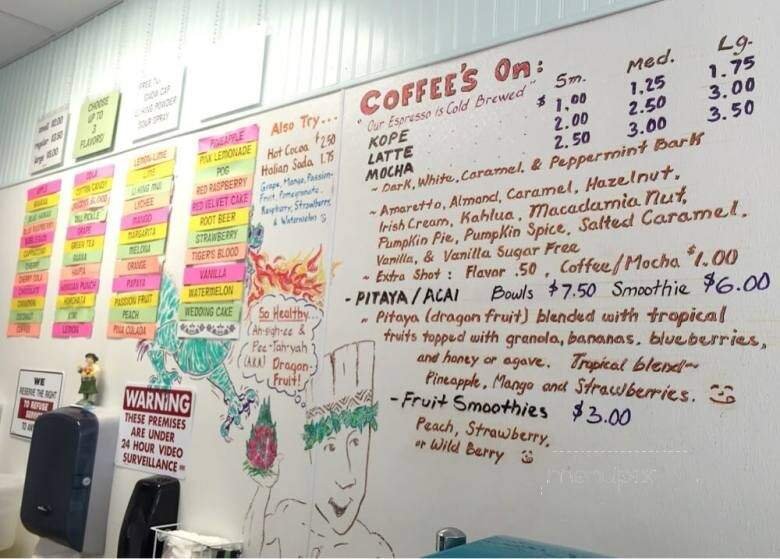 small $2.00
regular $2.50
large $3.00
CHOOSE
UP TO
3
FLAVORS!
FREE
SNOW CAP
LI HING POWDER
SOUR SPRAY
APPLE
BANANA
BLUE HAWAII
BLUE RASPBERRY
BUBBLEGUM
CAPPUCCINO
CHERRY
CHERRY COLA
CHOCOLATE
CINNAMON
COCONUT
COFFEE
COLA
COTTON CANDY
DILL PICKLE
GRAPE
GREEN TEA
GUAVA
HAUPIA
HAWAIIAN PUNCH
HORCHATA
KIWI
LEMON
LEMON-LIME
LIME
LI HING MUI
LYCHEE
MANGO
MARGARITA
MELONA
ORANGE
PAPAYA
PASSION FRUIT
PEACH
PINA COLADA
PINEAPPLE
PINK LEMONADE
POG
RED RASPBERRY
RED VELVET CAKE
ROOT BEER
STRAWBERRY
TIGER'S BLOOD
VANILLA
WATERMELON
WEDDING CAKE
Also Try...
Hot Cocoa $2.50
Italian Soda 1.75
Grape, Mango, Passion-
Fruit, Pomegranate,
Raspberry, Strawberry
& Watermelon
So Healthy...
(Ah-sigh-ee &
Pee-Tah-yah
(AKA) Dragon
Fruit!
COFFEE'S On:
"Our Espresso is Cold Brewed"
Sm. Med. Lg.
KOPE $1.00 1.25 1.75
LATTE 2.00 2.50 3.00
MOCHA 2.50 3.00 3.50
~ Dark, White, Caramel, & Peppermint Bark
~ Amaretto, Almond, Caramel, Hazelnut,
Irish Cream, Kahlua, Macadamia Nut,
Pumpkin Pie, Pumpkin Spice, Salted Caramel,
Vanilla, & Vanilla Sugar Free
~ Extra Shot: Flavor .50, Coffee/Mocha $1.00
- PITAYA/ACAI Bowls $7.50 Smoothie $6.00
~ Pitaya (dragon fruit) blended with tropical
fruits topped with granola, bananas, blueberries,
and honey or agave. Tropical blend~
Pineapple, Mango and Strawberries.
- Fruit Smoothies $3.00
Peach, Strawberry,
or Wild Berry
WE
RESERVE THE RIGHT
TO REFUSE
WARNING
THESE PREMISES
ARE UNDER
24 HOUR VIDEO
SURVEILLANCE
menupix